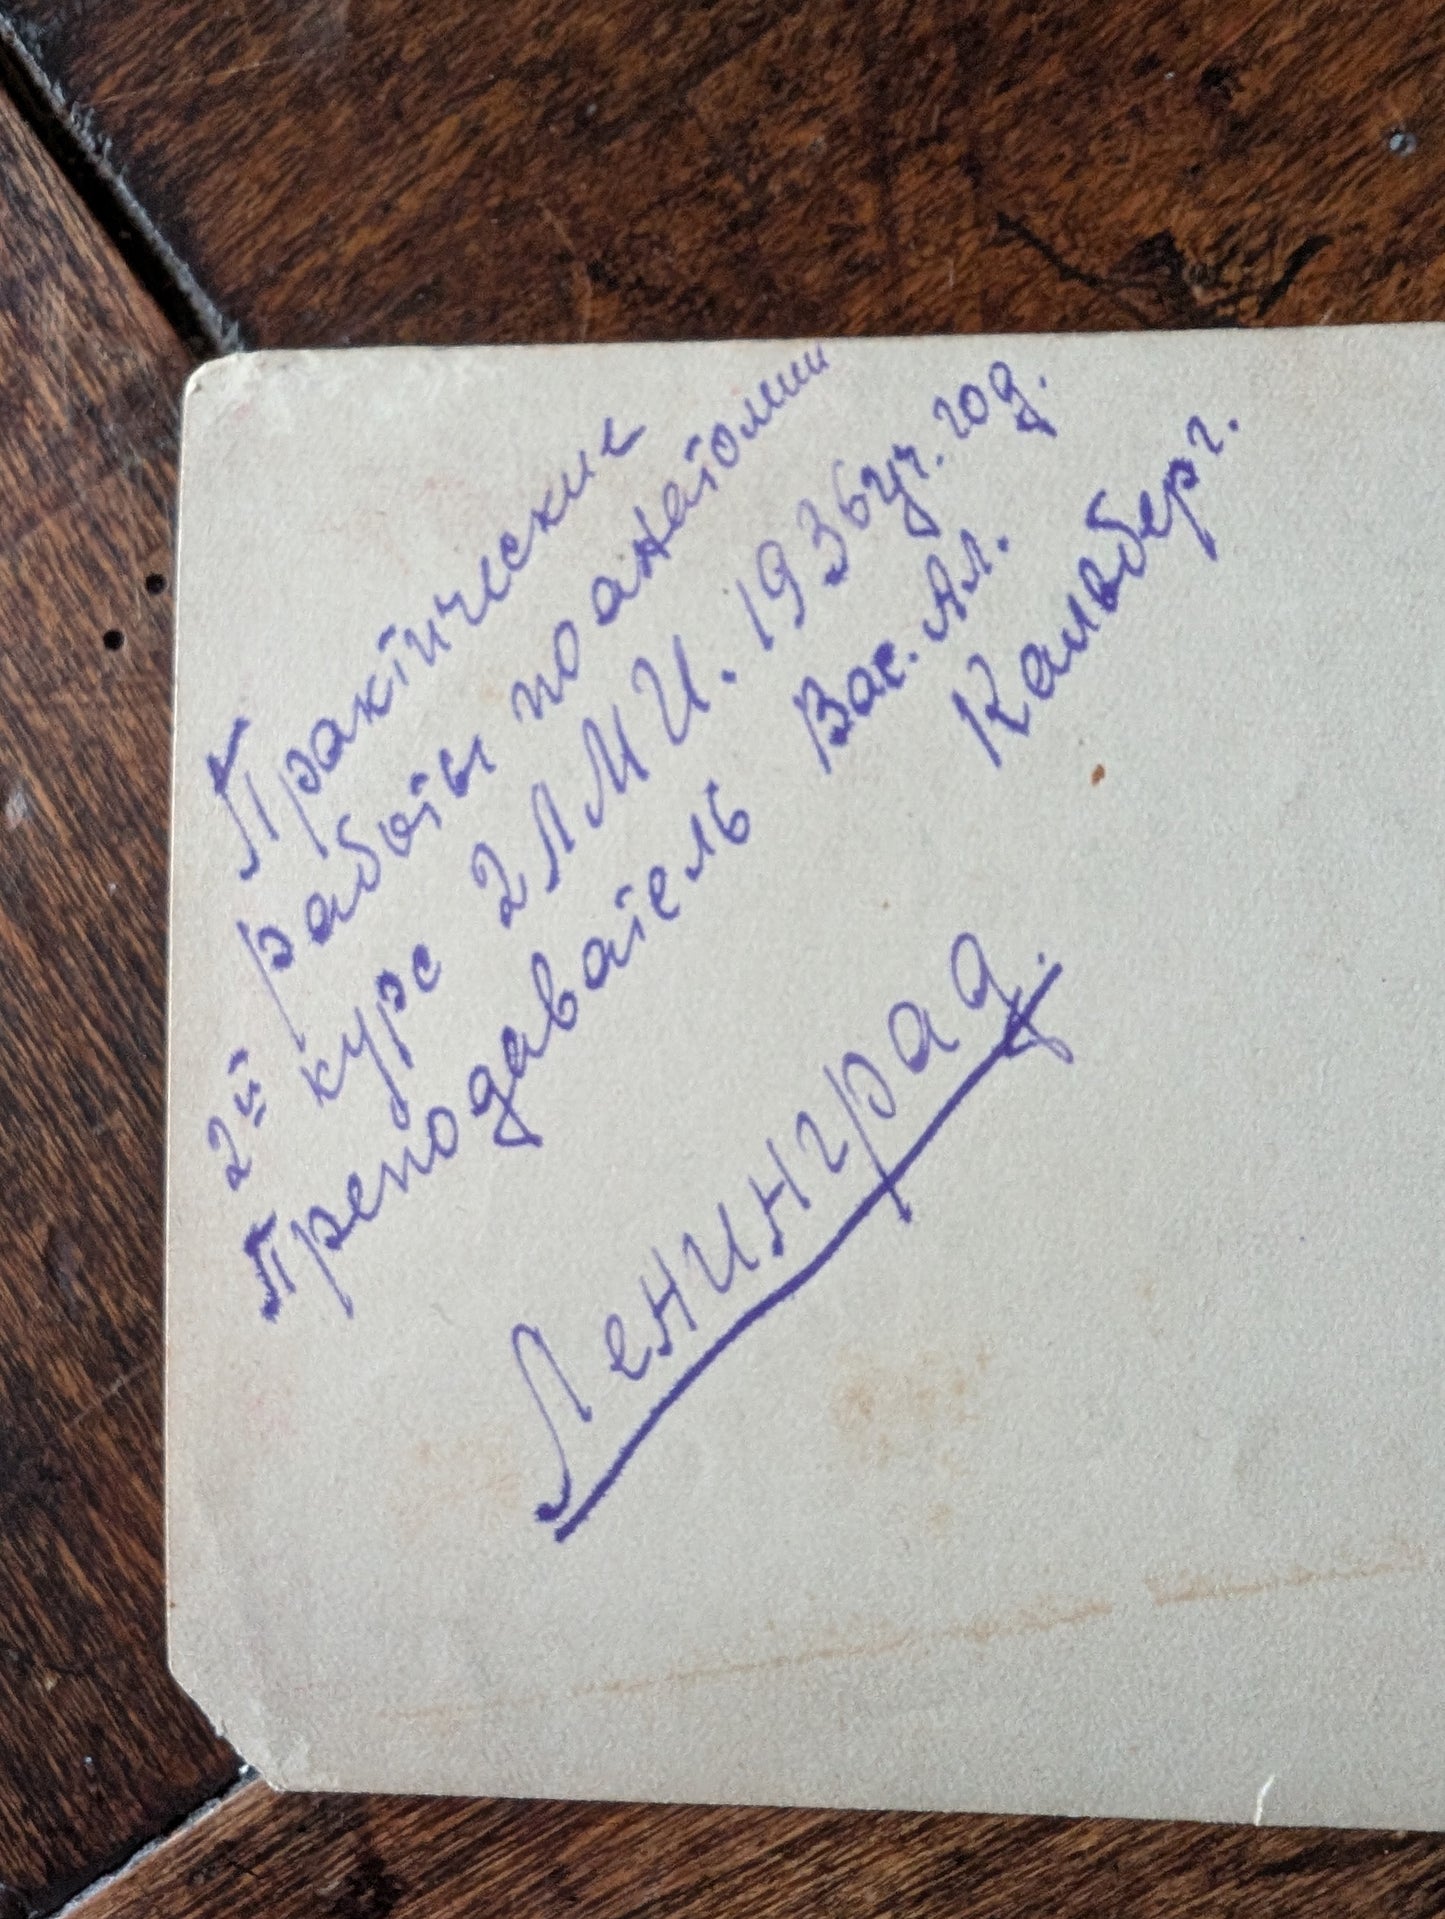 Практические
работы по анатомии
2й курс 2ЛМИ. 1936 уч. год.
Преподаватель Вас. Ал.
Кальберг.
Ленинград.